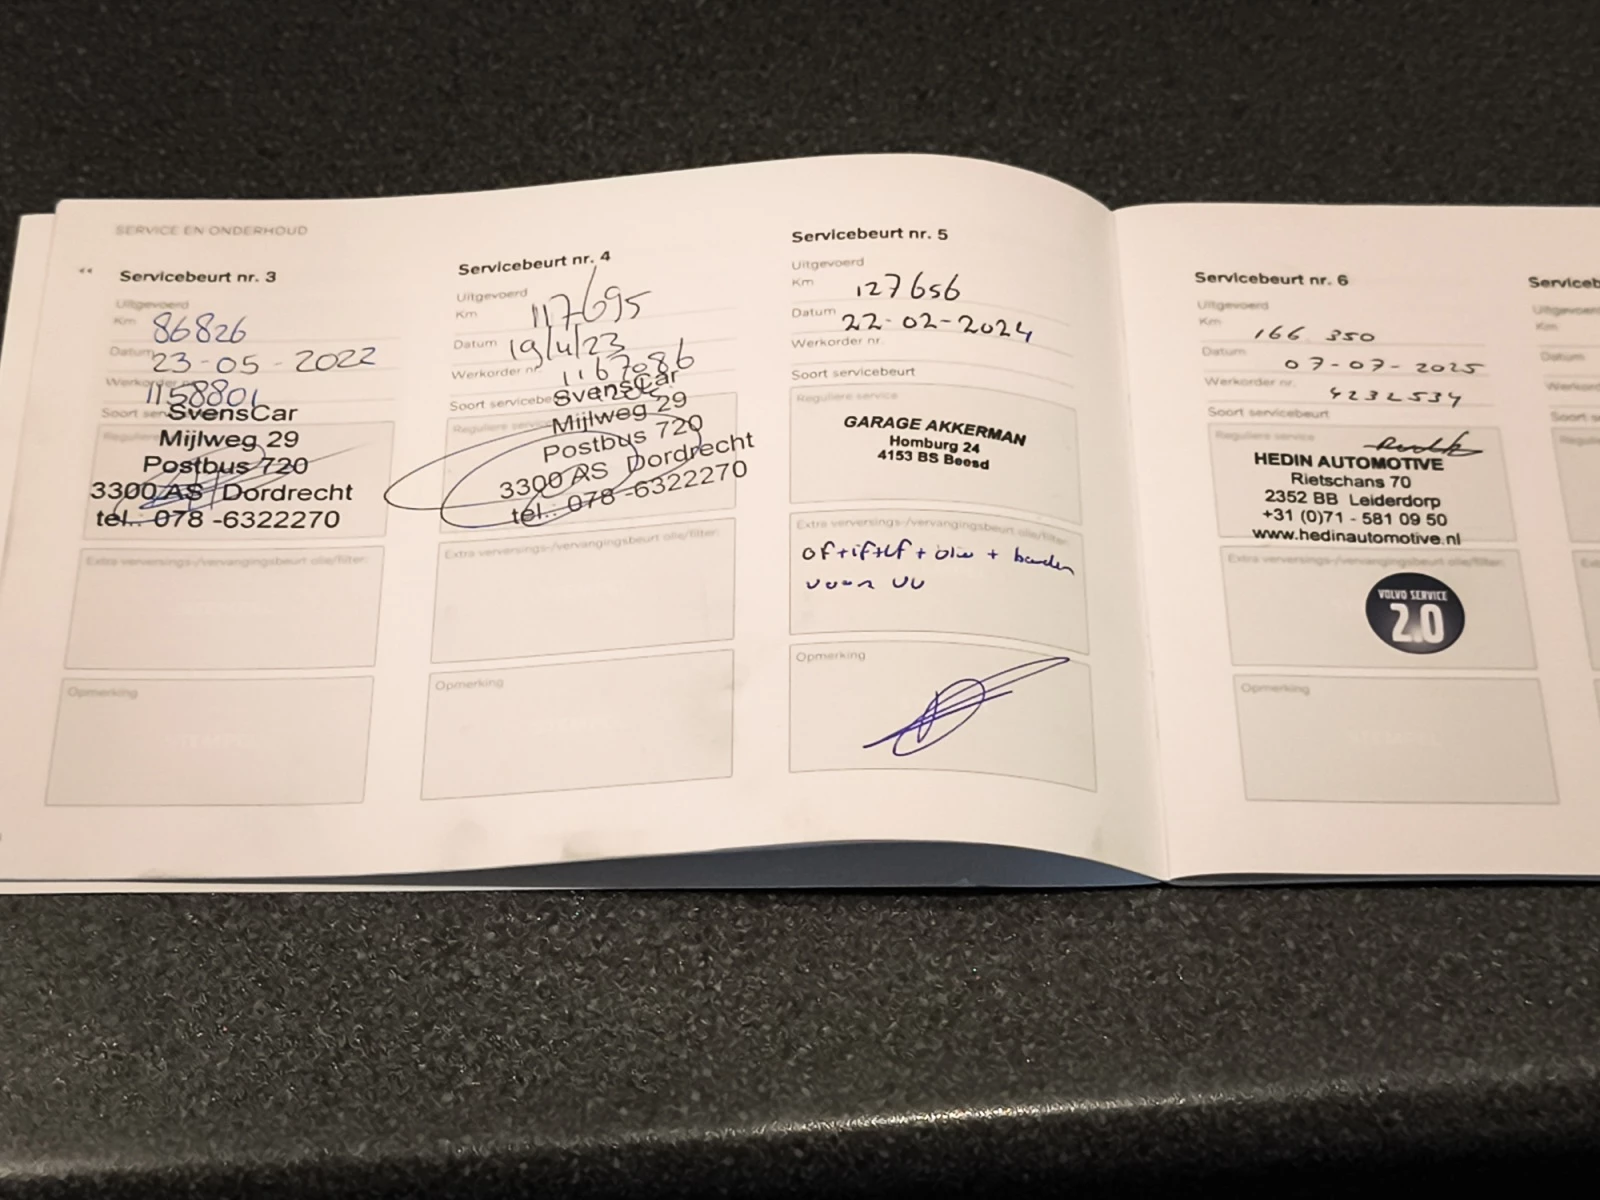 SERVICE EN ONDERHOUD
Servicebeurt nr. 3
Uitgevoerd
Km 86826
Datum 23-05-2022
Werkorder nr. 1158801
SvensCar
Mijlweg 29
Postbus 720
3300 AS Dordrecht
tel.: 078 -6322270
Extra verversings-/vervangingsbeurt olie/filter:
Opmerking
Servicebeurt nr. 4
Uitgevoerd
Km 117695
Datum 19/4/23
Werkorder nr. 1167086
SvensCar
Mijlweg 29
Postbus 720
3300 AS Dordrecht
tel.: 078 -6322270
Extra verversings-/vervangingsbeurt olie/filter:
Opmerking
Servicebeurt nr. 5
Uitgevoerd
Km 127656
Datum 22-02-2024
Werkorder nr.
Soort servicebeurt
Reguliere service
GARAGE AKKERMAN
Homburg 24
4153 BS Beesd
Extra verversings-/vervangingsbeurt olie/filter:
of+if+lf + olie + banden
voor vv
Opmerking
Servicebeurt nr. 6
Uitgevoerd
Km 166 350
Datum 07-07-2025
Werkorder nr. 4232534
Soort servicebeurt
Reguliere service
HEDIN AUTOMOTIVE
Rietschans 70
2352 BB Leiderdorp
+31 (0)71 - 581 09 50
www.hedinautomotive.nl
Extra verversings-/vervangingsbeurt olie/filter:
VOLVO SERVICE
2.0
Opmerking